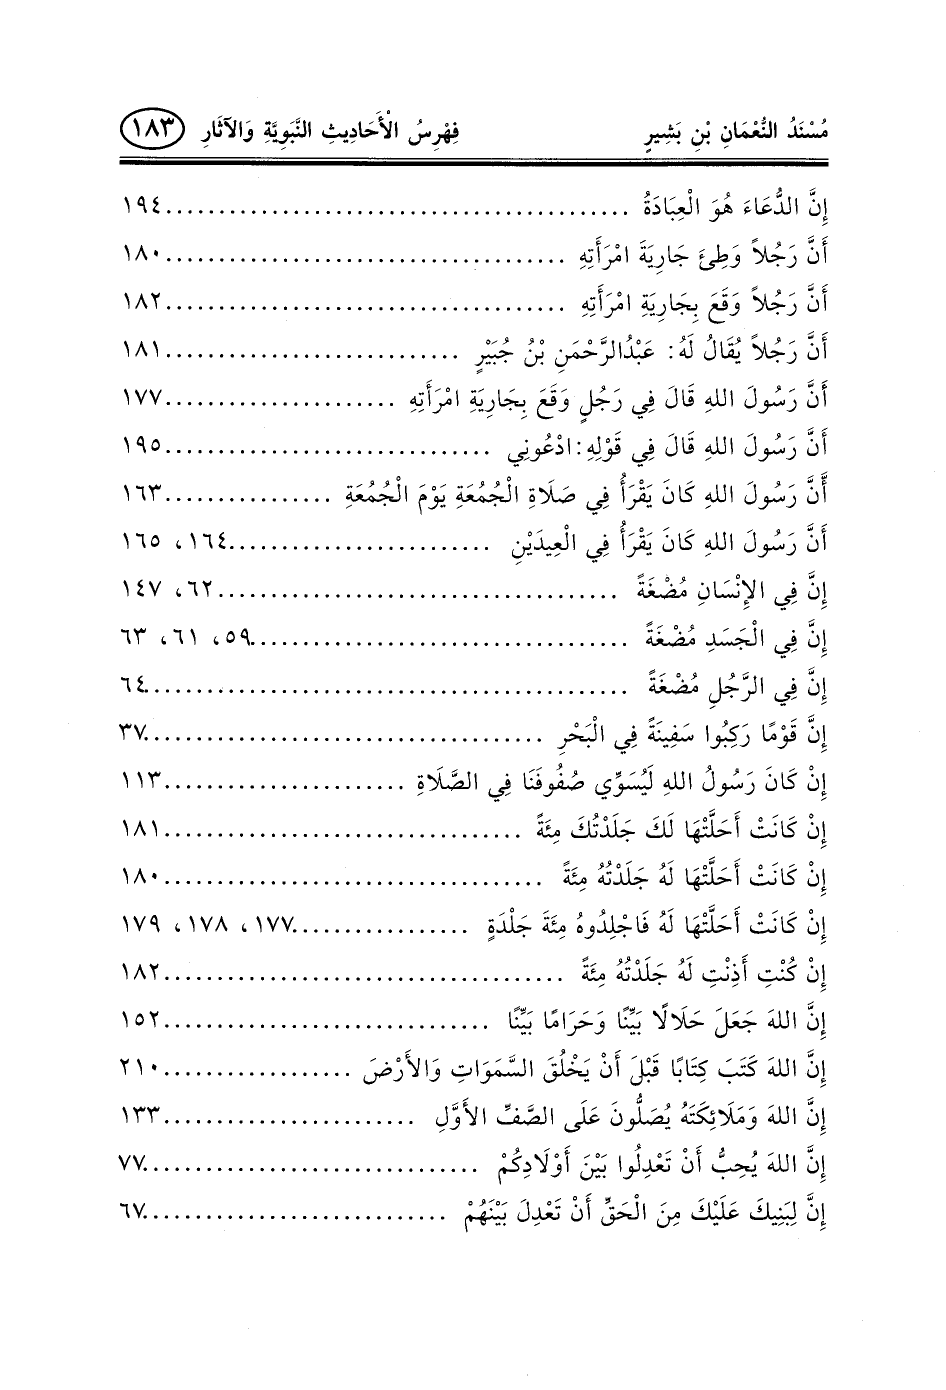 مُسْنَدُ النُّعْمَانِ بْنِ بَشِيرٍ فِهْرِسُ الْأَحَادِيثِ النَّبَوِيَّةِ وَالآثَارِ ١٨٣
إِنَّ الدُّعَاءَ هُوَ الْعِبَادَةُ ............................................ ١٩٤
أَنَّ رَجُلاً وَطِئَ جَارِيَةَ امْرَأَتِهِ ...................................... ١٨٠
أَنَّ رَجُلاً وَقَعَ بِجَارِيَةِ امْرَأَتِهِ ...................................... ١٨٢
أَنَّ رَجُلاً يُقَالُ لَهُ: عَبْدُالرَّحْمَنِ بْنُ جُبَيْرٍ ............................ ١٨١
أَنَّ رَسُولَ اللهِ قَالَ فِي رَجُلٍ وَقَعَ بِجَارِيَةِ امْرَأَتِهِ ...................... ١٧٧
أَنَّ رَسُولَ اللهِ قَالَ فِي قَوْلِهِ: ادْعُونِي ............................... ١٩٥
أَنَّ رَسُولَ اللهِ كَانَ يَقْرَأُ فِي صَلَاةِ الْجُمُعَةِ يَوْمَ الْجُمُعَةِ ................ ١٦٣
أَنَّ رَسُولَ اللهِ كَانَ يَقْرَأُ فِي الْعِيدَيْنِ ......................... ١٦٤، ١٦٥
إِنَّ فِي الإِنْسَانِ مُضْغَةً ...................................... ٦٢، ١٤٧
إِنَّ فِي الْجَسَدِ مُضْغَةً .................................... ٥٩، ٦١، ٦٣
إِنَّ فِي الرَّجُلِ مُضْغَةً .............................................. ٦٤
إِنَّ قَوْمًا رَكِبُوا سَفِينَةً فِي الْبَحْرِ ...................................... ٣٧
إِنْ كَانَ رَسُولُ اللهِ لَيُسَوِّي صُفُوفَنَا فِي الصَّلَاةِ ....................... ١١٣
إِنْ كَانَتْ أَحَلَّتْهَا لَكَ جَلَدْتُكَ مِئَةً .................................. ١٨١
إِنْ كَانَتْ أَحَلَّتْهَا لَهُ جَلَدْتُهُ مِئَةً .................................... ١٨٠
إِنْ كَانَتْ أَحَلَّتْهَا لَهُ فَاجْلِدُوهُ مِئَةَ جَلْدَةٍ ................. ١٧٧، ١٧٨، ١٧٩
إِنْ كُنْتِ أَذِنْتِ لَهُ جَلَدْتُهُ مِئَةً ...................................... ١٨٢
إِنَّ اللهَ جَعَلَ حَلَالًا بَيِّنًا وَحَرَامًا بَيِّنًا ............................... ١٥٢
إِنَّ اللهَ كَتَبَ كِتَابًا قَبْلَ أَنْ يَخْلُقَ السَّمَوَاتِ وَالأَرْضَ .................. ٢١٠
إِنَّ اللهَ وَمَلَائِكَتَهُ يُصَلُّونَ عَلَى الصَّفِّ الأَوَّلِ ........................ ١٣٣
إِنَّ اللهَ يُحِبُّ أَنْ تَعْدِلُوا بَيْنَ أَوْلَادِكُمْ ................................ ٧٧
إِنَّ لِبَنِيكَ عَلَيْكَ مِنَ الْحَقِّ أَنْ تَعْدِلَ بَيْنَهُمْ ............................. ٦٧